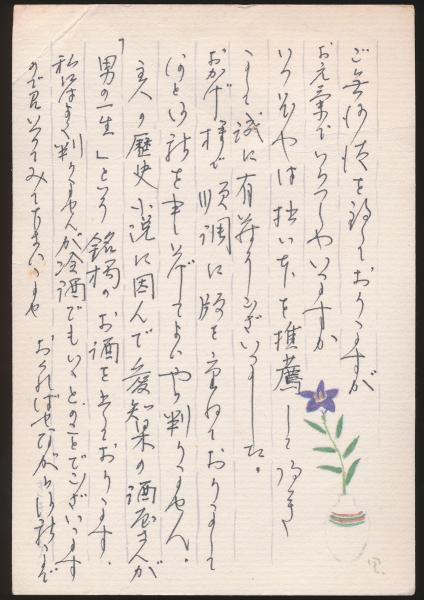 ご無沙汰を致しておりますが
お元気でいらっしゃいますか
いつぞやは拙い本を推薦して頂き
まして誠に有難うございました。
おかげ様で順調に版を重ねておりまして
何とお礼を申し上げてよいやら判りません。
主人の歴史小説に因んで愛知県の酒屋さんが
「男の一生」という銘柄のお酒を出しております。
私にはよく判りませんが冷酒でもいいとのことでございます
ので召し上ってみて下さいませ
おくればせながらお礼まで